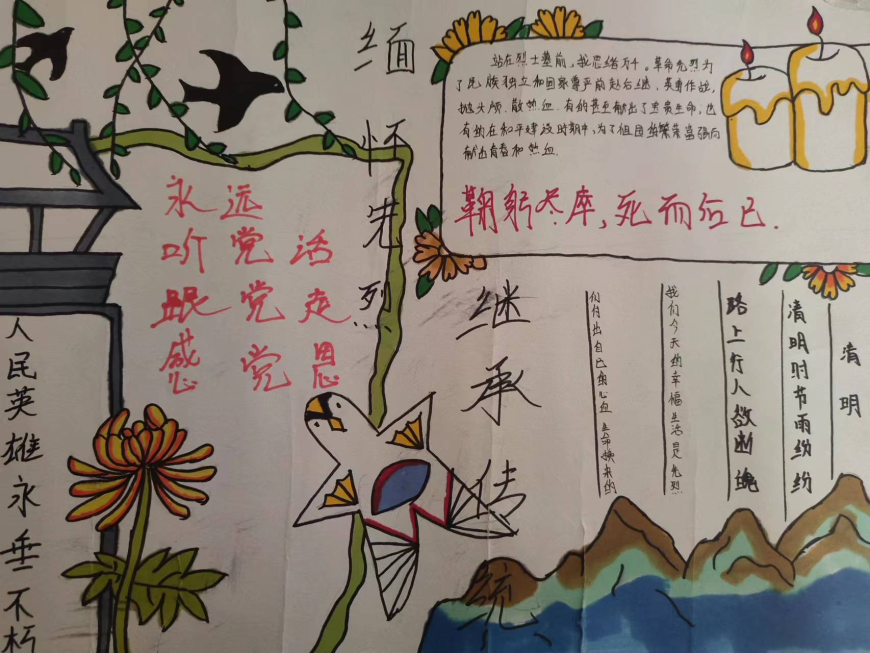 缅怀先烈
继承传统
站在烈士墓前,我思绪万千。革命先烈为
了民族独立和国家尊严前赴后继,英勇作战,
抛头颅、散热血.有的甚至献出了宝贵生命,也
有的在和平建设时期中,为了祖国的繁荣富强而
献出青春和热血.
鞠躬尽瘁,死而后已.
永远
听党活
跟党走
感党恩
人民英雄永垂不朽
清明
清明时节雨纷纷
路上行人欲断魂
我们今天的幸福生活是先烈
们付出自己的心血生命换来的